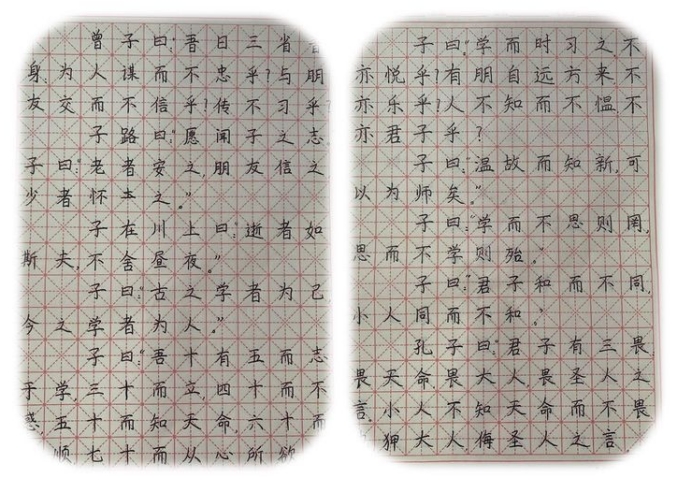 曾子曰:"吾日三省
身:为人谋而不忠乎?与朋
友交而不信乎?传不习乎?
子路曰:"愿闻子之志。
子曰:"老者安之,朋友信之
少者怀本之。"
子在川上曰:"逝者如
斯夫,不舍昼夜。"
子曰:"古之学者为己,
今之学者为人。"
子曰:"吾十有五而志
于学,三十而立,四十而不
惑,五十而知天命,六十而
顺七十而从心所欲
子曰:"学而时习之不
亦悦乎?有朋自远方来不
亦乐乎?人不知而不愠,不
亦君子乎?
子曰:"温故而知新,可
以为师矣。"
子曰:"学而不思则罔,
思而不学则殆。"
子曰:"君子和而不同,
小人同而不和。"
孔子曰:"君子有三畏,
畏天命畏大人,畏圣人之
言,小人不知天命而不畏
狎大人,侮圣人之言。